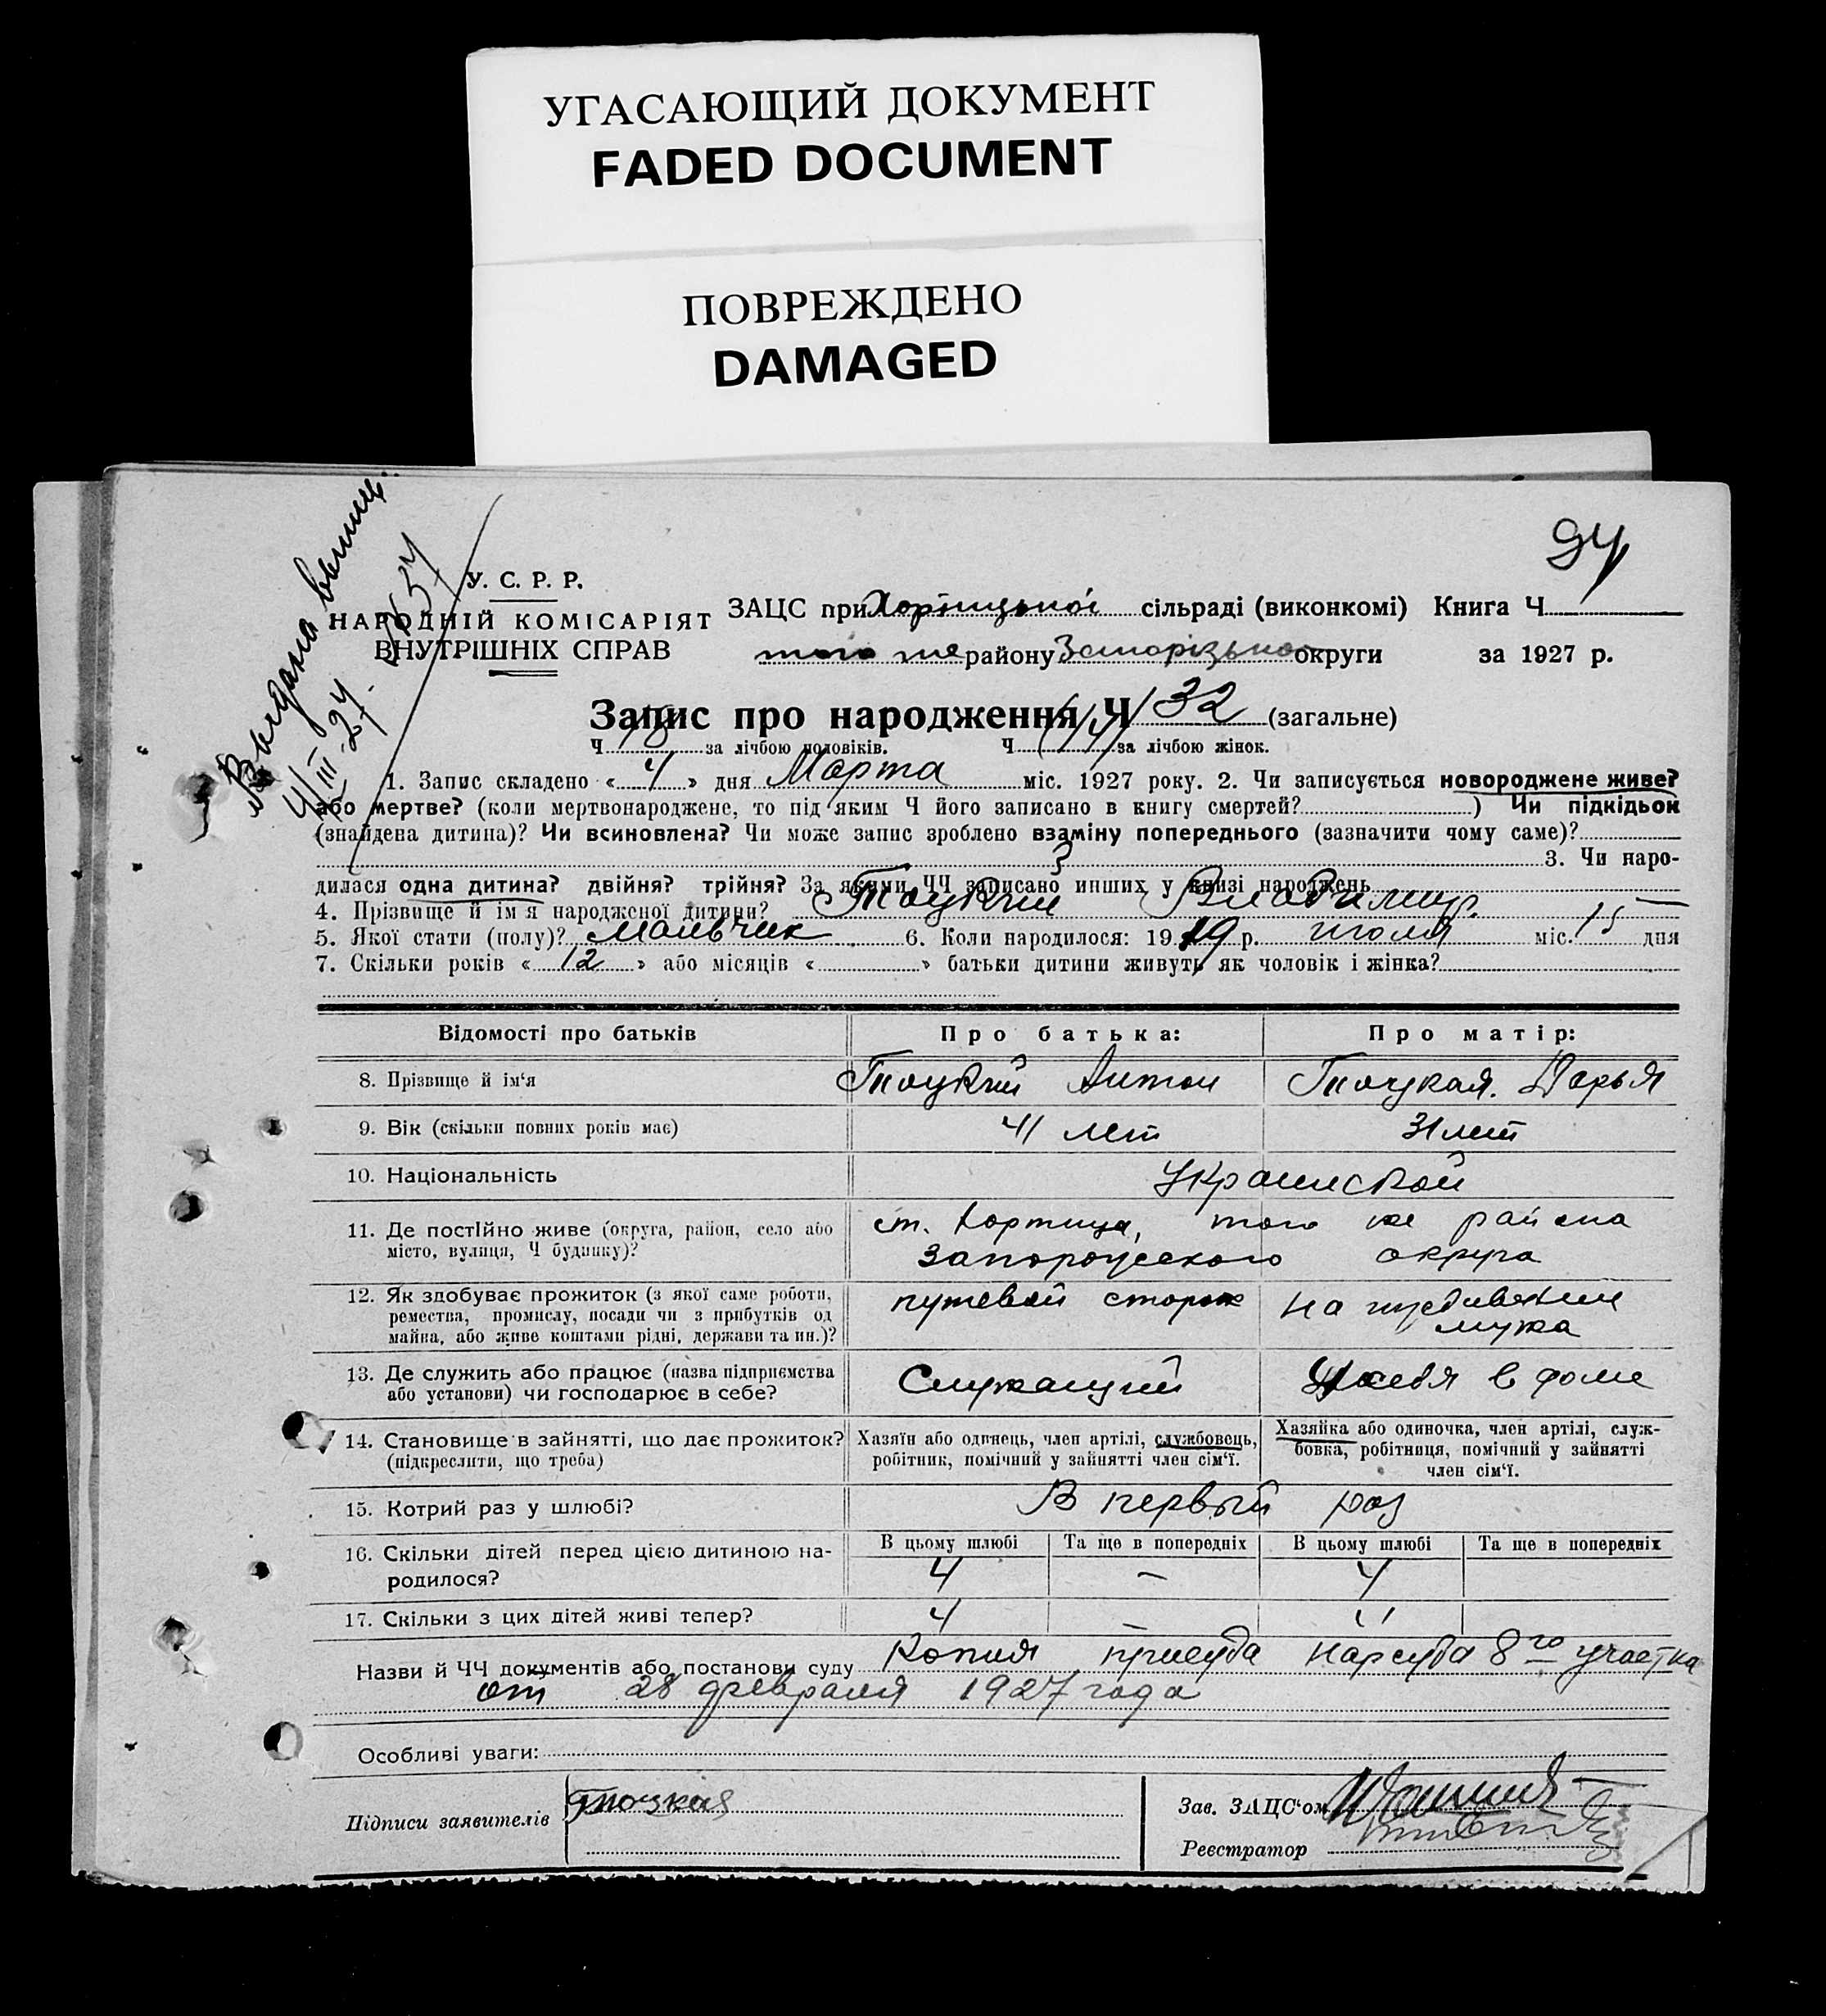 УГАСАЮЩИЙ ДОКУМЕНТ
FADED DOCUMENT
ПОВРЕЖДЕНО
DAMAGED
94
Выдана
4/III-27
У. С. Р. Р.
НАРОДНІЙ КОМІСАРІЯТ
ВНУТРІШНІХ СПРАВ
ЗАЦС при Хортицької сільраді (виконкомі) Книга Ч
того же району Запорізької округи за 1927 р.
Запис про народження Ч 32 (загальне)
Ч 18 за лічбою чоловіків. Ч (14) за лічбою жінок.
1. Запис складено « 4 » дня Марта міс. 1927 року. 2. Чи записується новороджене живе?
або мертве? (коли мертвонароджене, то під яким Ч його записано в книгу смертей?) Чи підкідьок
(знайдена дитина)? Чи всиновлена? Чи може запис зроблено взаміну попереднього (зазначити чому саме)?
3. Чи наро-
дилася одна дитина? двійня? трійня? За якими ЧЧ записано инших у книзі народжень
4. Прізвище й ім'я народженої дитини? Тоцкий Владимир.
5. Якої стати (полу)? Мальчик 6. Коли народилося: 1919 р. июля міс. 15 дня
7. Скільки років « 12 » або місяців « » батьки дитини живуть як чоловік і жінка?
Відомості про батьків Про батька: Про матір:
8. Прізвище й ім'я Тоцкий Антон Тоцкая. Дарья
9. Вік (скільки повних років має) 41 лет 31 лет
10. Національність Украинской
11. Де постійно живе (округа, район, село або ст. Хортица, того же района
місто, вулиця, Ч будинку)? Запорожского округа
12. Як здобуває прожиток (з якої саме роботи, путевой сторож на иждивении
ремества, промислу, посади чи з прибутків од мужа
майна, або живе коштами рідні, держави та ин.)?
13. Де служить або працює (назва підприємства Служащий У себя в доме
або установи) чи господарює в себе?
14. Становище в зайнятті, що дає прожиток? Хазяїн або одинець, член артілі, службовець, Хазяйка або одиночка, член артілі, служ-
(підкреслити, що треба) робітник, помічний у зайнятті член сім'ї. бовка, робітниця, помічний у зайнятті
член сім'ї.
15. Котрий раз у шлюбі? В первый раз
16. Скільки дітей перед цією дитиною на- В цьому шлюбі Та ще в попередніх В цьому шлюбі Та ще в попередніх
родилося? 4 – 4
17. Скільки з цих дітей живі тепер? 4 – 4
Назви й ЧЧ документів або постанови суду Копия присуда Нарсуда 8го участка
от 28 февраля 1927 года
Особливі уваги:
Підписи заявителів Тоцкая
Зав. ЗАЦС'ом
Реєстратор